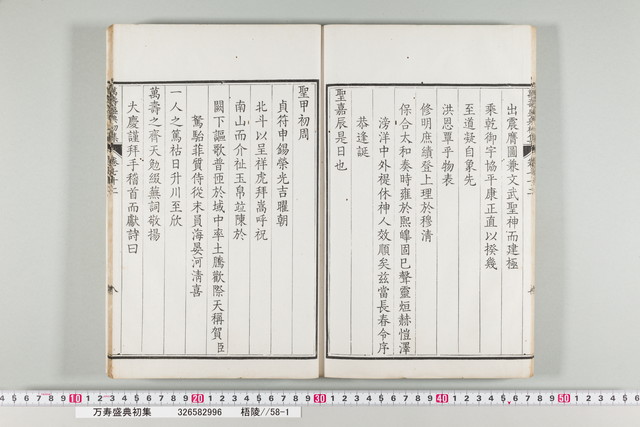 出震膺圖兼文武聖神而建極
乘乾御宇協平康正直以揆幾
至道凝自象先
洪恩覃乎物表
修明庶績登上理於穆清
保合太和奏時雍於熙皥固已聲靈烜赫愷澤
滂洋中外禔休神人效順矣茲當長春令序
恭逢誕
聖嘉辰是日也
聖甲初周
貞符申錫榮光吉曜朝
北斗以呈祥虎拜嵩呼祝
南山而介祉玉帛竝陳於
闕下謳歌普匝於域中率土騰歡際天稱賀臣
駑駘菲質侍從末員海晏河清喜
一人之篤祜日升川至欣
萬壽之齊天勉綴蕪詞敬揚
大慶謹拜手稽首而獻詩曰
万寿盛典初集 326582996 梧陵//58-1